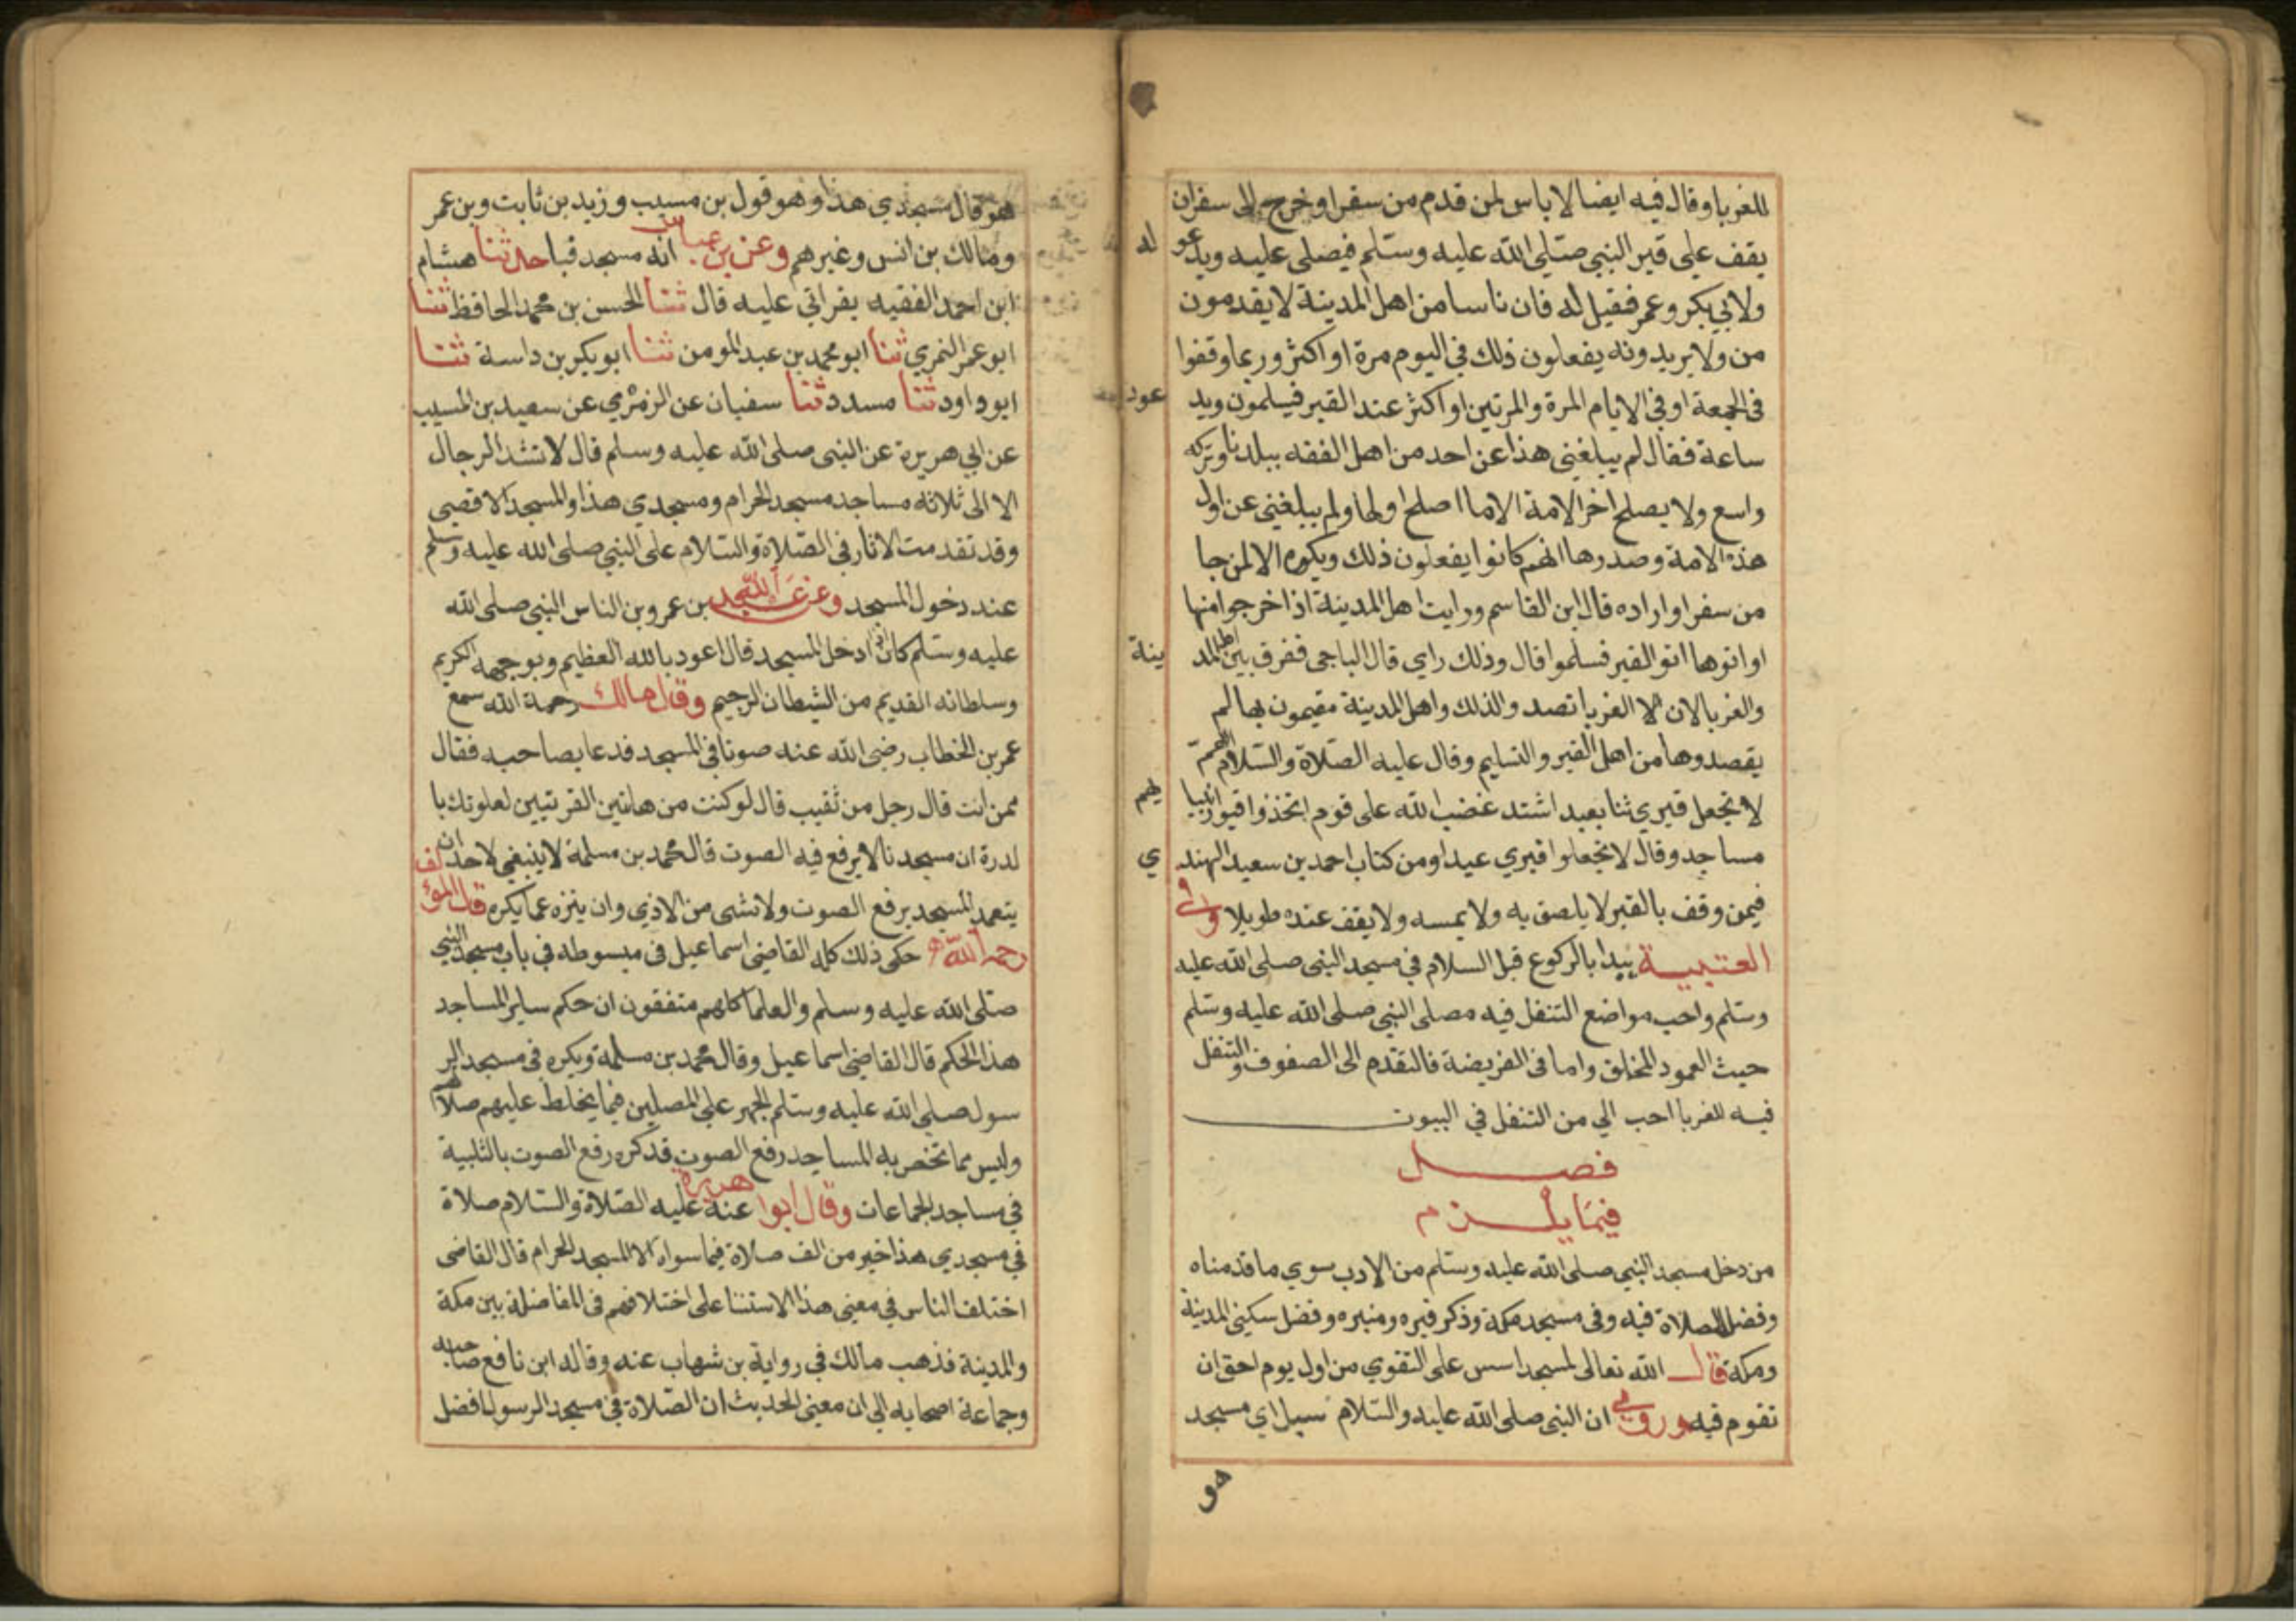 للغربا وقال فيه ايضا لا باس لمن قدم من سفر او خرج الى سفر ان
يقف على قبر النبي صلى الله عليه وسلم فيصلي عليه ويدعو له
ولابي بكر وعمر فقيل له فان ناسا من اهل المدينة لا يقدمون
من ولا يريدونه يفعلون ذلك في اليوم مرة او اكثر وربما وقفوا
في الجمعة او في الايام المرة والمرتين او اكثر عند القبر فيسلمون ويد عود
ساعة فقال لم يبلغني هذا عن احد من اهل الفقه ببلدنا وتركه
واسع ولا يصلح اخر الامة الا ما اصلح اولها ولم يبلغني عن اول
هذه الامة وصدرها انهم كانوا يفعلون ذلك ويكره الا لمن جا
من سفر او اراده قال ابن القاسم ورايت اهل المدينة اذا خرجوا منها
او اتوها اتو القبر فسلموا قال وذلك راي قال الباجي ففرق بين اهل المد ينة
والغربا لان الا الغربا تصدوالذلك واهل المدينة مقيمون بها لم
يقصدوها من اهل القبر والتسليم وقال عليه الصلاة والسلام اللهم
لا تجعل قبري ثنا يعبد اشتد غضب الله على قوم اتخذوا قبور انبيا يهم
مساجد وقال لا تجعلوا قبري عيدا ومن كتاب احمد بن سعيد الهند ي
فيمن وقف بالقبر لا يلصق به ولا يمسه ولا يقف عنده طويلا وفي
العتبية يبدا بالركوع قبل السلام في مسجد النبي صلى الله عليه
وسلم واحب مواضع التنفل فيه مصلى النبي صلى الله عليه وسلم
حيث العمود المخلق واما في الفريضة فالتقدم الى الصفوف والتنفل
فيه للغربا احب الي من التنفل في البيوت
فصل
فيما يلزم
من دخل مسجد النبي صلى الله عليه وسلم من الادب سوي ما قدمناه
وفضل الصلاة فيه وفي مسجد مكة وذكر قبره ومنبره وفضل سكنى المدينة
ومكة قال الله تعالى لمسجد اسس على التقوي من اول يوم احق ان
تقوم فيه وروي ان النبي صلى الله عليه والسلام سيل اي مسجد
هو
هو قال مسجدي هذا وهو قول بن مسيب وزيد بن ثابت وبن عمر
ومالك بن انس وغيرهم وعن بن عباس انه مسجد قبا حدثنا هشام
ابن احمد الفقيه بقراتي عليه قال ثنا الحسن بن محمد الحافظ ثنا
ابو عمر النمري ثنا ابو محمد بن عبد المومن ثنا ابو بكر بن داسة ثنا
ابو داود ثنا مسدد ثنا سفيان عن الزهري عن سعيد بن المسيب
عن ابي هريرة عن النبي صلى الله عليه وسلم قال لا تشد الرحال
الا الى ثلاثه مساجد مسجد الحرام ومسجدي هذا والمسجد الاقصى
وقد تقدمت الاثار في الصلاة والسلام على النبي صلى الله عليه وسلم
عند دخول المسجد وعن عبد الله بن عمرو بن الناس النبي صلى الله
عليه وسلم كان اذا دخل المسجد قال اعود بالله العظيم وبوجهه الكريم
وسلطانه القديم من الشيطان الرجيم وقال مالك رحمة الله سمع
عمر بن الخطاب رضي الله عنه صوتا في المسجد فدعا بصاحبه فقال
ممن انت قال رجل من ثقيب قال لو كنت من هاتين القريتين لعلوتك با
لدرة ان مسجدنا لا يرفع فيه الصوت قال محمد بن مسلمة لا ينبغي لاحد ان
يتعمد المسجد برفع الصوت ولا شي من الاذي وان ينزه عما يكره قال المؤلف
رحمه الله حكى ذلك كله القاضي اسماعيل في مبسوطه في باب مسجد النبي
صلى الله عليه وسلم والعلما كلهم متفقون ان حكم ساير المساجد
هذا الحكم قال القاضي اسماعيل وقال محمد بن مسلمة ويكره في مسجد الر
سول صلى الله عليه وسلم الجهر على المصلين فيما يخلط عليهم صلاتهم
وليس مما تخص به المساجد رفع الصوت قد كره رفع الصوت بالتلبية
في مساجد الجماعات وقال ابوا هريرة عنه عليه الصلاة والسلام صلاة
في مسجدي هذا خير من الف صلاة فيما سواه الا المسجد الحرام قال القاضي
اختلف الناس في معنى هذا الاستثنا على اختلافهم في المفاضلة بين مكة
والمدينة فذهب مالك في رواية بن شهاب عنه وقاله ابن نافع صاحبه
وجماعة اصحابه الي ان معنى الحديث ان الصلاة في مسجد الرسول افضل